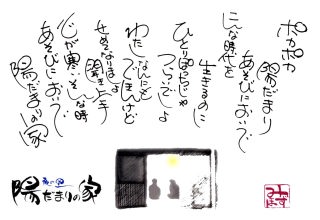 ポカポカ
陽だまり
あそびにおいで
こんな時代を
生きるのに
ひとりぼっちじゃ
つらいでしょ
わたしなんにも
できないけど
せめてなりましょ
聞き上手
心が寒いそんな時
あそびにおいで
陽だまりの家
陽だまりの家